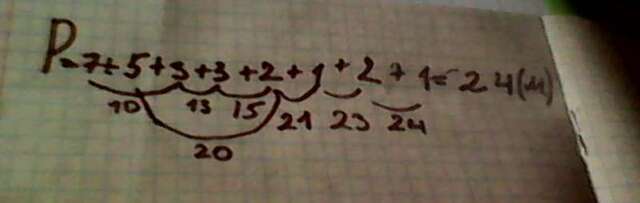 P=7+5+3+3+2+1+2+1=24(м)
10 13 15 21 23 24
20